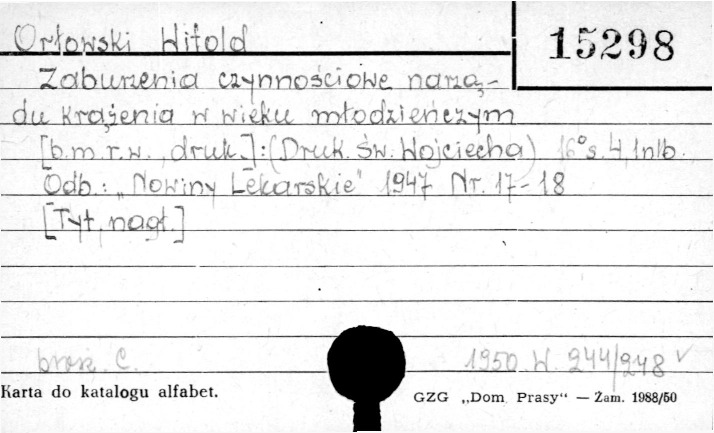 Orłowski Witold
15298
Zaburzenia czynnościowe narzą-
du krążenia w wieku młodzieńczym
[b.m.r.w., druk.]: (Druk. Św. Wojciecha) 16° s. 4, 1nlb.
Odb.: „Nowiny Lekarskie" 1947 Nr. 17-18
[Tyt. nagł.]
brosz. C.
1950 W. 244/248 ✓
Karta do katalogu alfabet.
GZG „Dom Prasy“ — Zam. 1988/50